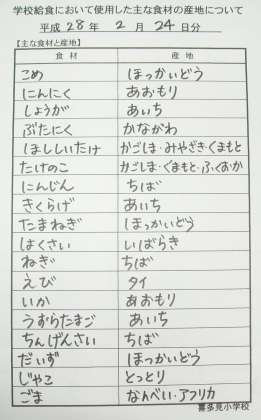 学校給食において使用した主な食材の産地について
平成 28 年 2 月 24 日分
【主な食材と産地】
食 材 産 地
こめ ほっかいどう
にんにく あおもり
しょうが あいち
ぶたにく かながわ
ほししいたけ かごしま・みやざき・くまもと
たけのこ かごしま・くまもと・ふくおか
にんじん ちば
きくらげ あいち
たまねぎ ほっかいどう
はくさい いばらき
ねぎ ちば
えび タイ
いか あおもり
うずらたまご あいち
ちんげんさい ちば
だいず ほっかいどう
じゃこ とっとり
ごま なんべい・アフリカ
喜多見小学校